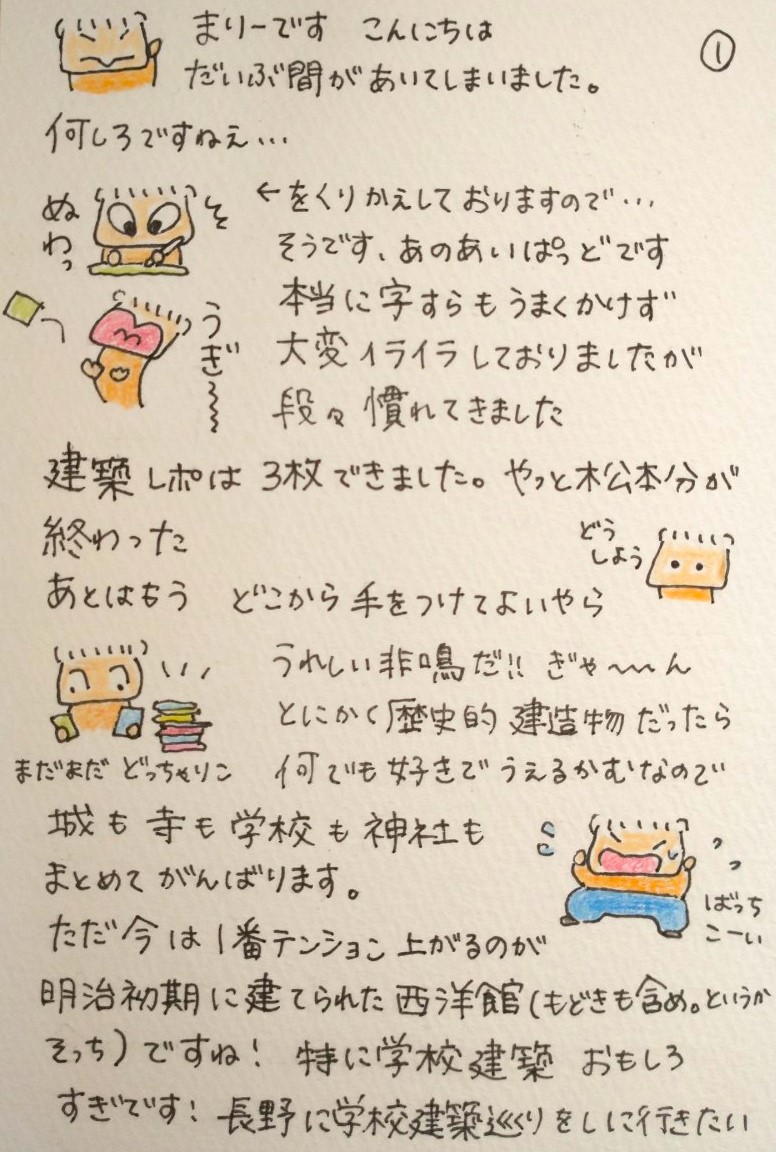 まりーです こんにちは
①
だいぶ間があいてしまいました。
何しろですねえ…
ぬわっ
←をくりかえしておりますので…
そうです、あのあいぱっどです
うぎ〜〜〜
本当に字すらもうまくかけず
大変イライラしておりましたが
段々慣れてきました
建築レポは3枚できました。やっと松本分が
終わった
どう
しよう
あとはもう どこから手をつけてよいやら
うれしい非鳴だ!! ぎゃ〜〜ん
とにかく歴史的建造物だったら
まだまだ どっちゃりこ
何でも好きでうえるかむなので
城も寺も学校も神社も
まとめてがんばります。
ばっち
こーい
ただ今は1番テンション上がるのが
明治初期に建てられた西洋館(もどきも含め。というか
そっち)ですね! 特に学校建築 おもしろ
すぎです! 長野に学校建築巡りをしに行きたい